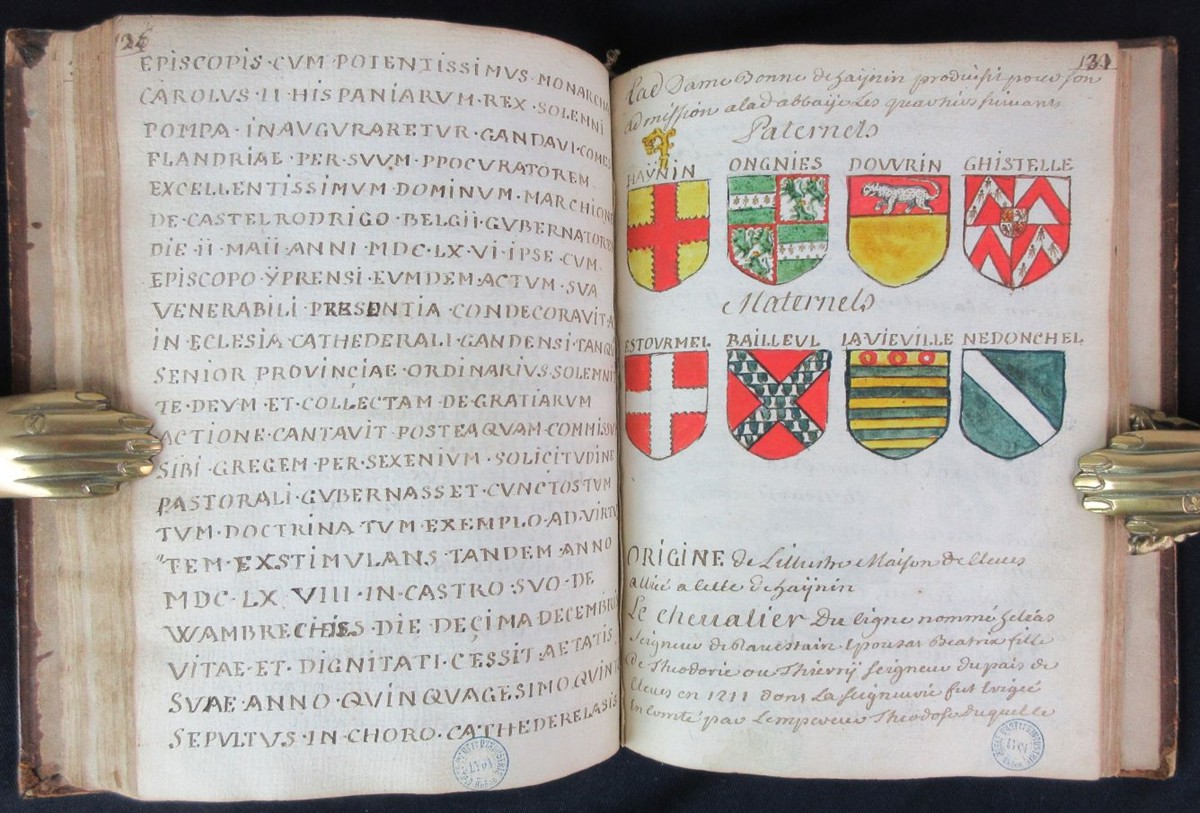 126
EPISCOPIS · CVM POTENTISSIMVS · MONARCHA
CAROLVS · II · HISPANIARVM · REX · SOLENNI
POMPA · INAVGVRARETVR · GANDAVI · COMES
FLANDRIAE · PER · SVVM · PPOCVRATOREM
EXCELLENTISSIMVM DOMINVM · MARCHIONE
DE · CASTEL RODRIGO · BELGII · GVBERNATOREM
DIE · II · MAII · ANNI · MDC · LX · VI · IPSE · CVM ·
EPISCOPO · ŸPRENSI · EVMDEM · ACTVM · SVA
VENERABILI PRESENTIA · CONDECORAVIT · A
IN ECLESIA CATHEDERALI · GANDENSI · TANQV
SENIOR PROVINCIAE · ORDINARIVS · SOLEMNI
TE · DEVM · ET · COLLECTAM · DE · GRATIARVM
ACTIONE · CANTAVIT · POSTEAQVAM · COMMISSV
SIBI · GREGEM · PER · SEXENIVM · SOLICITVDINE
PASTORALI · GVBERNASSET · CVNCTOS TVM
TVM · DOCTRINA TVM · EXEMPLO · AD · VIRTV
"TEM · EXSTIMVLANS · TANDEM · ANNO
MDC · LX VIII · IN · CASTRO · SVO · DE
DIE · DECIMA DECEMBRIS
VITAE · ET · DIGNITATI · CESSIT · AETATIS
SVAE · ANNO · QVINQVAGESIMO QVINT
SEPVLTVS · IN · CHORO · CATHEDERELASIS
lad Dame Bonne de haÿnin produisit pour son
admission a lad abbaÿe Les quartiers suivans
Paternels
HAYNIN ONGNIES DOVVRIN GHISTELLE
Maternels
ESTOVRMEL BAILLEVL LAVIEVILLE NEDONCHEL
ORIGINE de Lillustre Maison de Cleves
a celle de haÿnin
Le chevalier Du Cigne nommé
Seigneur de Beatrix fille
de Theodoric ou Thierrÿ seigneur du païs de
Cleves en 1211 dont La seigneurie fut Erigée
En Comté par Lempereur Theodose Duquelle